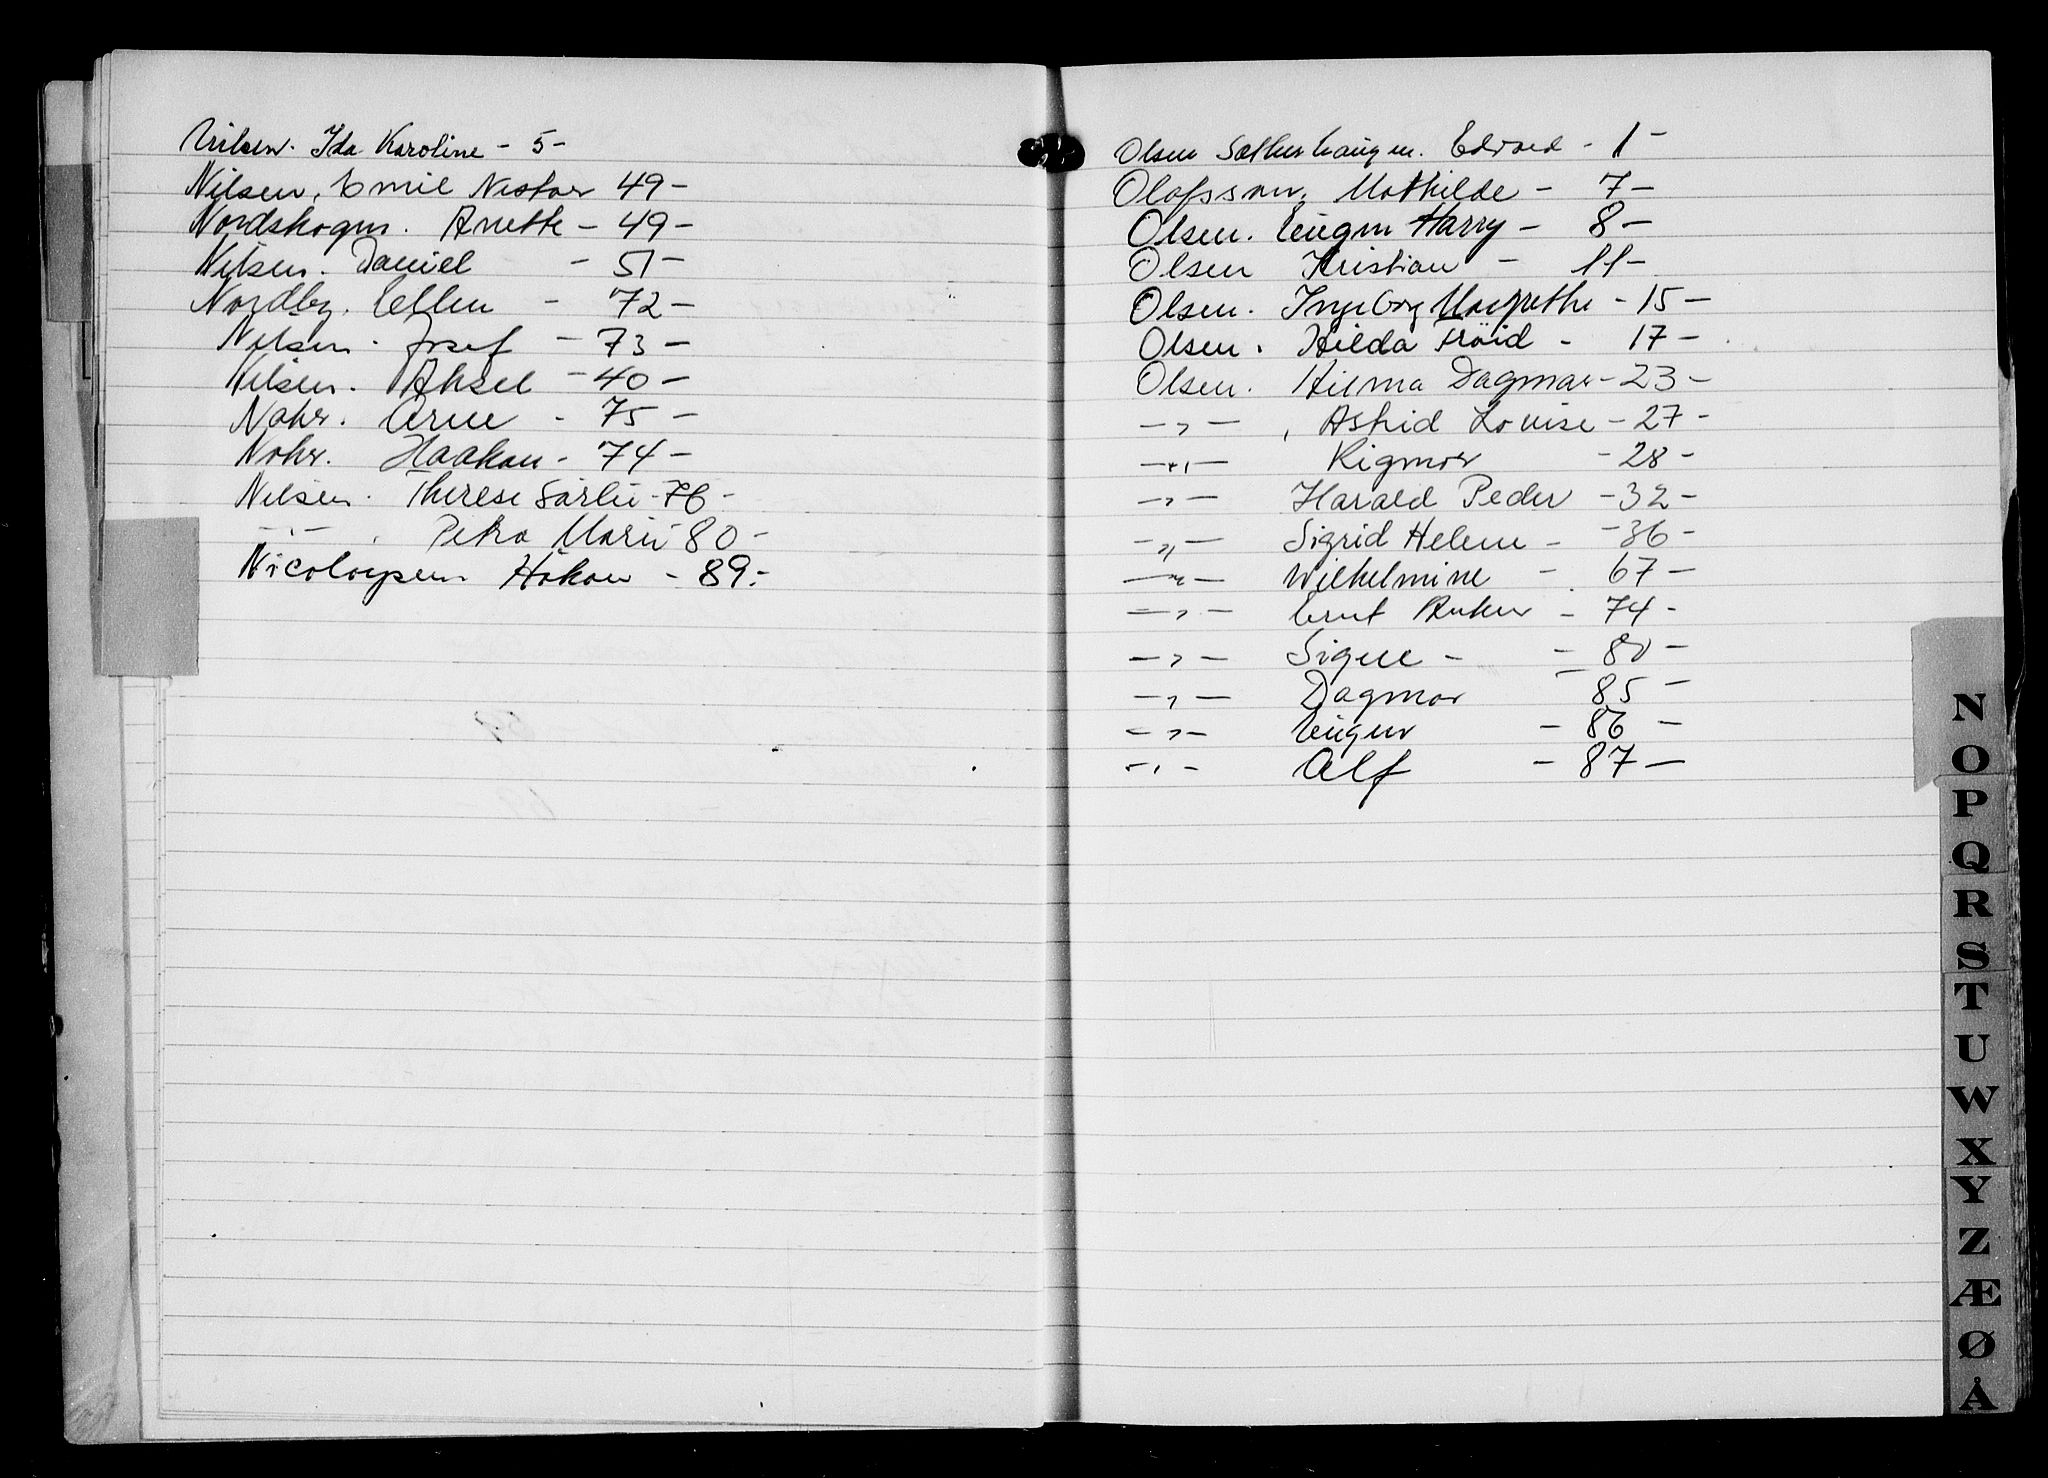 Nilsen. Ida Karoline - 5 -
Nilsen, Emil Nestor 49 -
Nordskogen. Anette - 49 -
Nilsen. Daniel - 51 -
Nordby. Ellen - 72 -
Nilsen. Josef - 73 -
Nilsen. Aksel - 40 -
Nohr. Arne - 75 -
Nohr. Haakon - 74 -
Nilsen. Therese Sørlie - 76 -
- " - . Petra Marie 80 -
Nicolaysen. Håkon - 89 -
Olsen Sætherhaugen. Edvard - 1 -
Olafssøn, Mathilde - 7 -
Olsen. Eugen Harry - 8 -
Olsen Kristian - 11 -
Olsen. Ingeborg Margrethe - 15 -
Olsen. Hilda Fröid - 17 -
Olsen. Hilma Dagmar - 23 -
- " - , Astrid Lovise - 27 -
- " - Rigmor - 28 -
- " - Harald Peder - 32 -
- " - Sigrid Helene - 36 -
- " - Wilhelmine - 67 -
- " - Ernt Anker - 74 -
- " - Signe - - 80 -
- " - Dagmar 85 -
- " - Eugen - 86 -
- " - Alf - 87 -
N
O
P
Q
R
S
T
U
W
X
Y
Z
Æ
Ø
Å